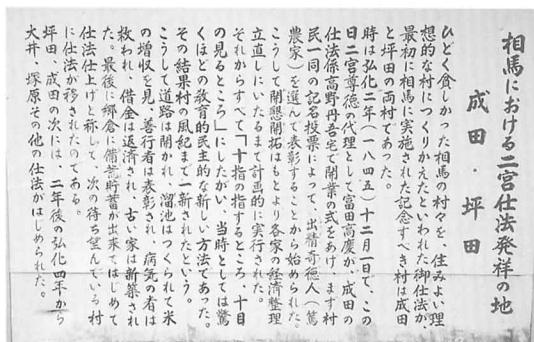 相馬における二宮仕法発祥の地
成田・坪田
ひどく貧しかった相馬の村々を、住みよい理
想的な村につくりかえたといわれた御仕法が、
最初に相馬に実施された記念すべき村は成田
と坪田の両村であった。
時は弘化二年(一八四五)十二月一日で、この
日二宮尊徳の代理として富田高慶が、成田の
仕法係高野丹吾宅で開業の式をあげ、まず村
民一同の記名投票によって、出精奇徳人(篤
農家)を選んで表彰することから始められた。
こうして開懇開拓はもとより各家の経済整理
立直しにいたるまで計画的に実行された。
それからすべて「十指の指するところ、十目
の見るところ」にしたがい、当時としては驚
くほどの教育的民主的な新しい方法であった。
その結果村の風紀まで一新されたという。
こうして道路は開かれ、溜池はつくられて米
の増収を見、善行者は表彰され、病気の者は
救われ、借金は返済され、古い家は新築され
た。最後に郷倉に備荒貯蓄が出来てはじめて
仕法仕上げと称して、次の待ち望んでいる村
に仕法が移されたのである。
坪田、成田の次には、二年後の弘化四年から
大井、塚原その他の仕法がはじめられた。